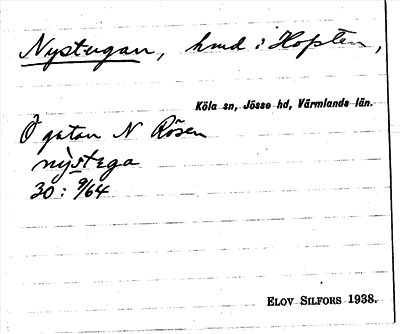 Nystugan, hmd i Hopsten,
Köla sn, Jösse hd, Värmlands län.
Ö gatan N Rösen
nỳstega
30: 9/64
ELOV SILFORS 1938.